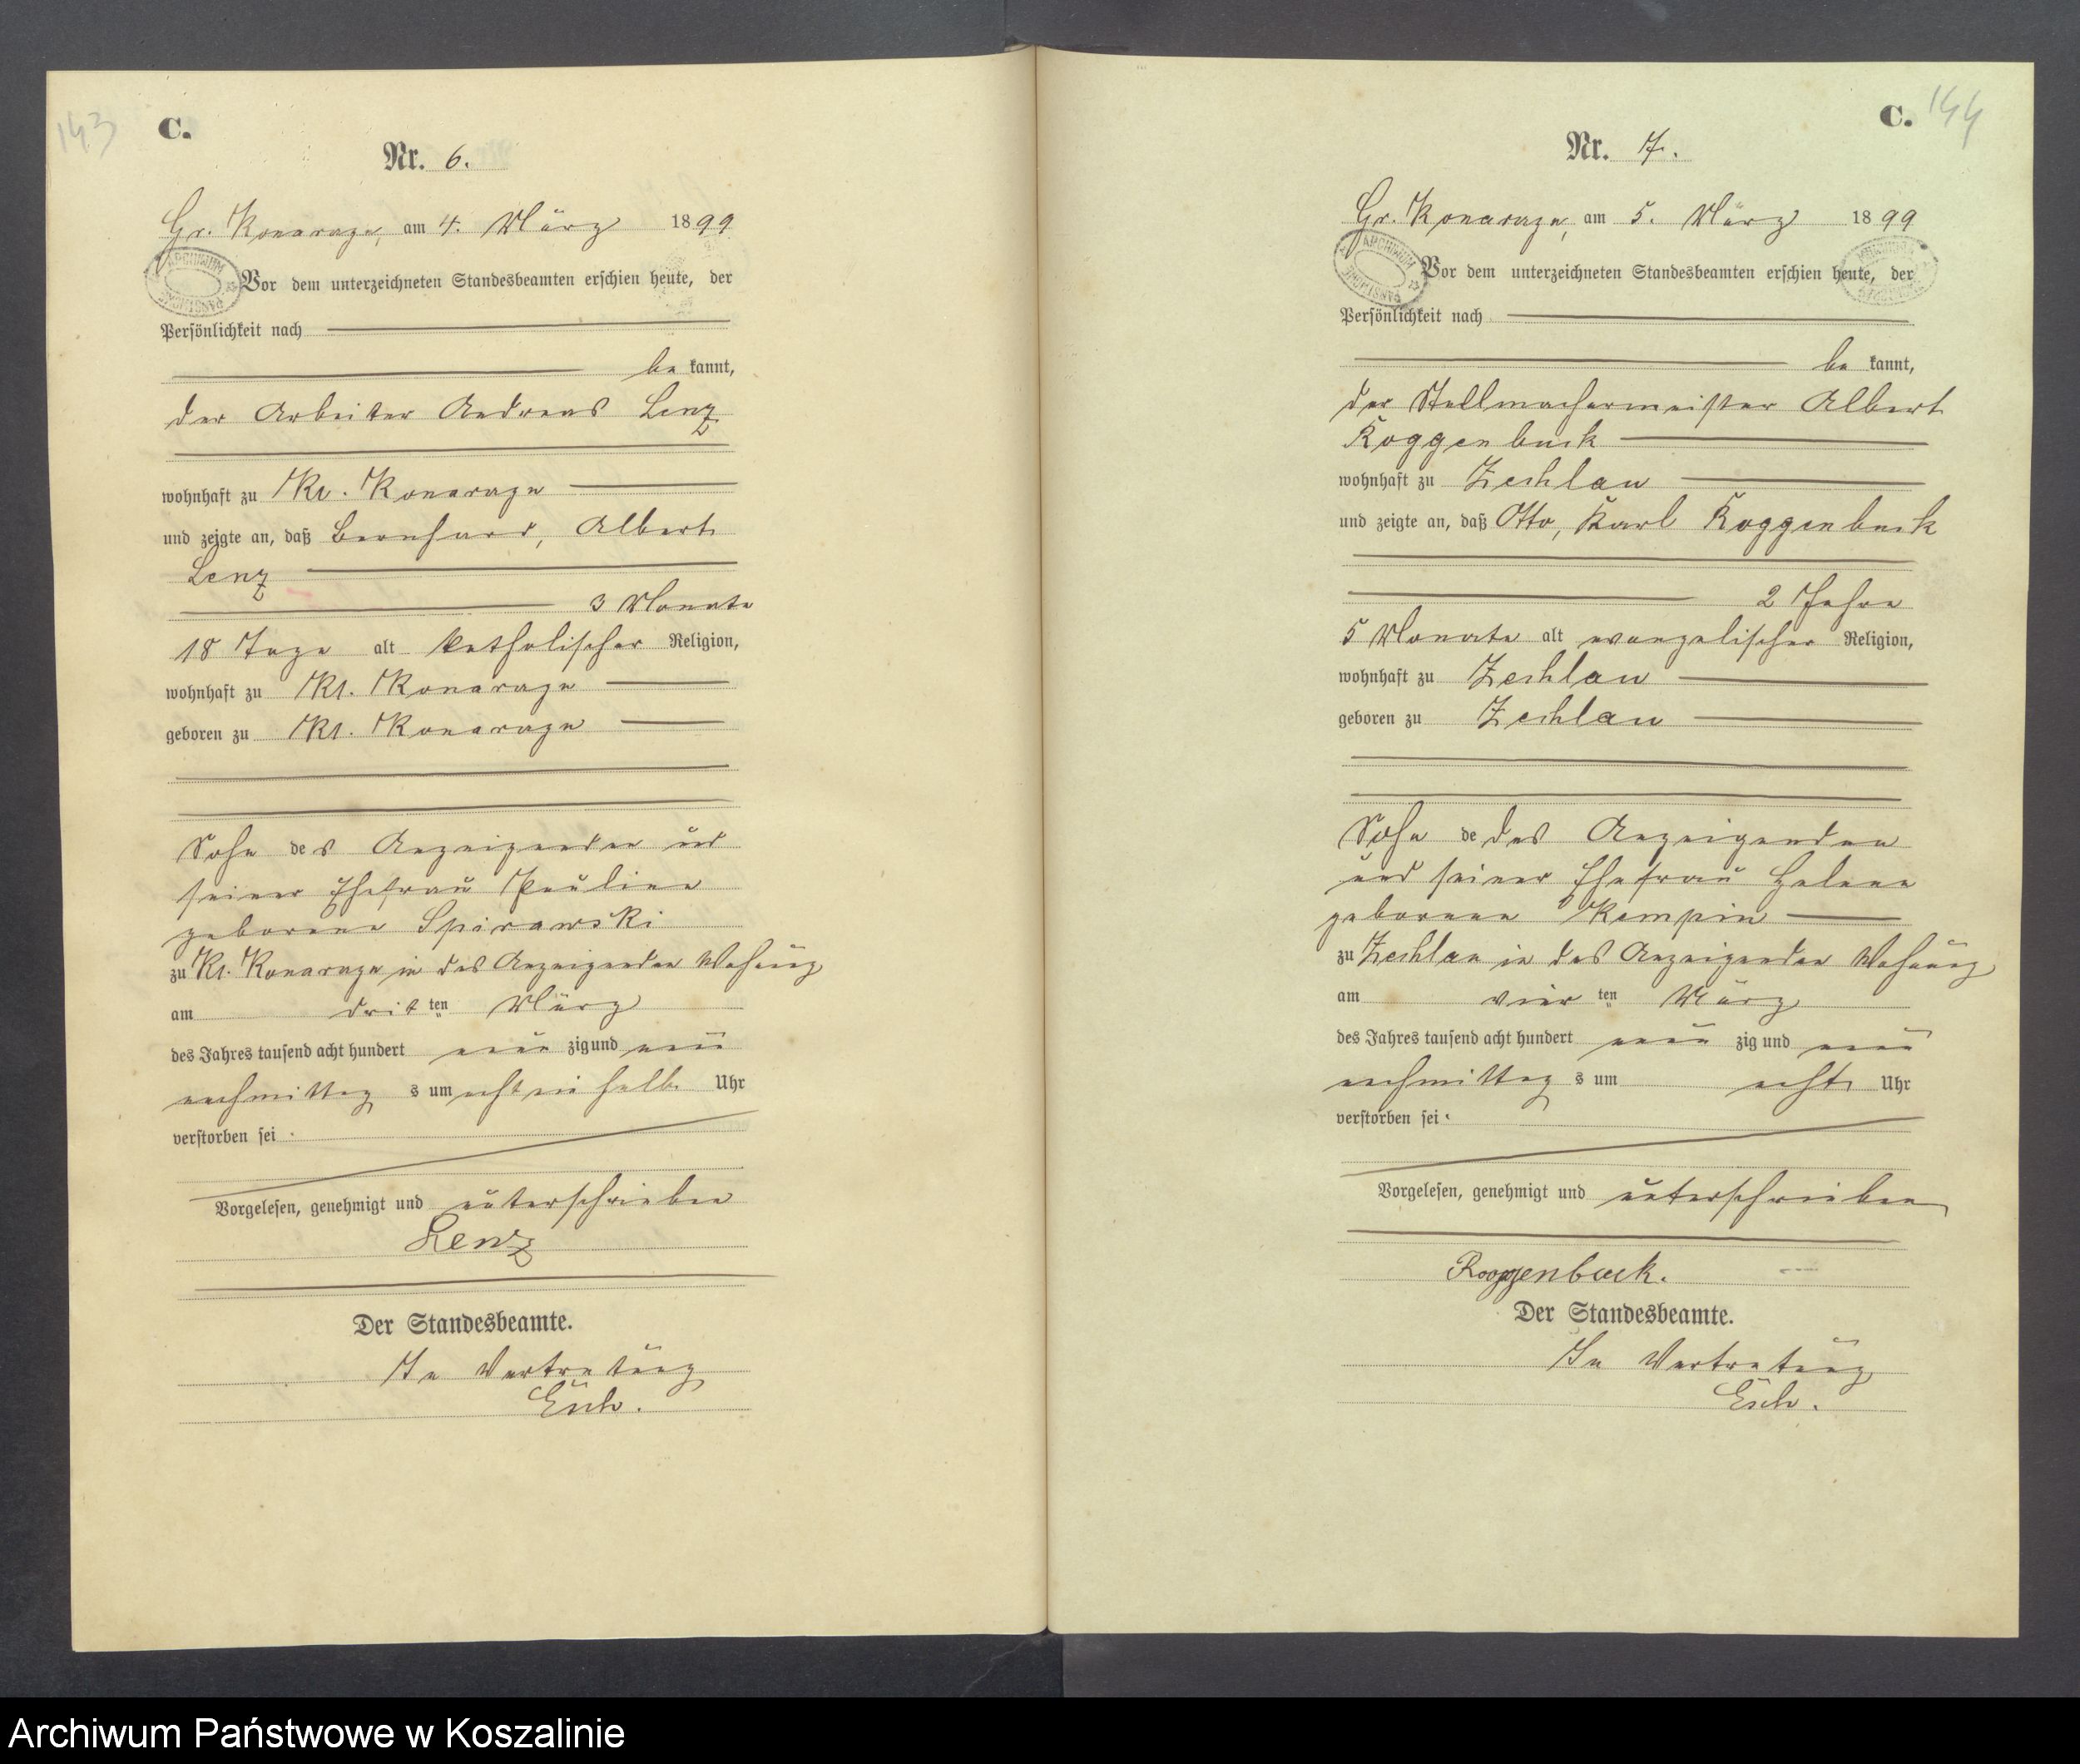 143
C.
Nr. 6.
Gr. Konarzyn, am 4. März 1899
Vor dem unterzeichneten Standesbeamten erschien heute, der
Persönlichkeit nach
be kannt,
der Arbeiter Andreas Lenz
wohnhaft zu Kl. Konarzyn
und zeigte an, daß Bernhard, Albert
Lenz
3 Monate
18 Tage alt katholischer Religion,
wohnhaft zu Kl. Konarzyn
geboren zu Kl. Konarzyn
Sohn des Anzeigenden und
seiner Ehefrau Pauline
geborene Spirawski
zu Kl. Konarzyn in des Anzeigenden Wohnung
am dritten März
des Jahres tausend acht hundert neun zig und neun
nachmittags um acht ein halb Uhr
verstorben sei.
Vorgelesen, genehmigt und unterschrieben
Lenz
Der Standesbeamte.
In Vertretung
144
C.
Nr. 7.
Gr. Konarzyn, am 5. März 1899
ARCHIWUM
Vor dem unterzeichneten Standesbeamten erschien heute, der
Persönlichkeit nach
be kannt,
der Stellmachermeister Albert
Roggenbuck
wohnhaft zu Zechlau
und zeigte an, daß Otto, Karl Roggenbuck
2 Jahre
5 Monate alt evangelischer Religion,
wohnhaft zu Zechlau
geboren zu Zechlau
Sohn de des Anzeigenden
und seiner Ehefrau Helene
geborenen Kempin
zu Zechlau in des Anzeigenden Wohnung
am vierten März
des Jahres tausend acht hundert neun zig und neun
nachmittags um acht Uhr
verstorben sei.
Vorgelesen, genehmigt und unterschrieben
Roggenbuck.
Der Standesbeamte.
In Vertretung
Archiwum Państwowe w Koszalinie